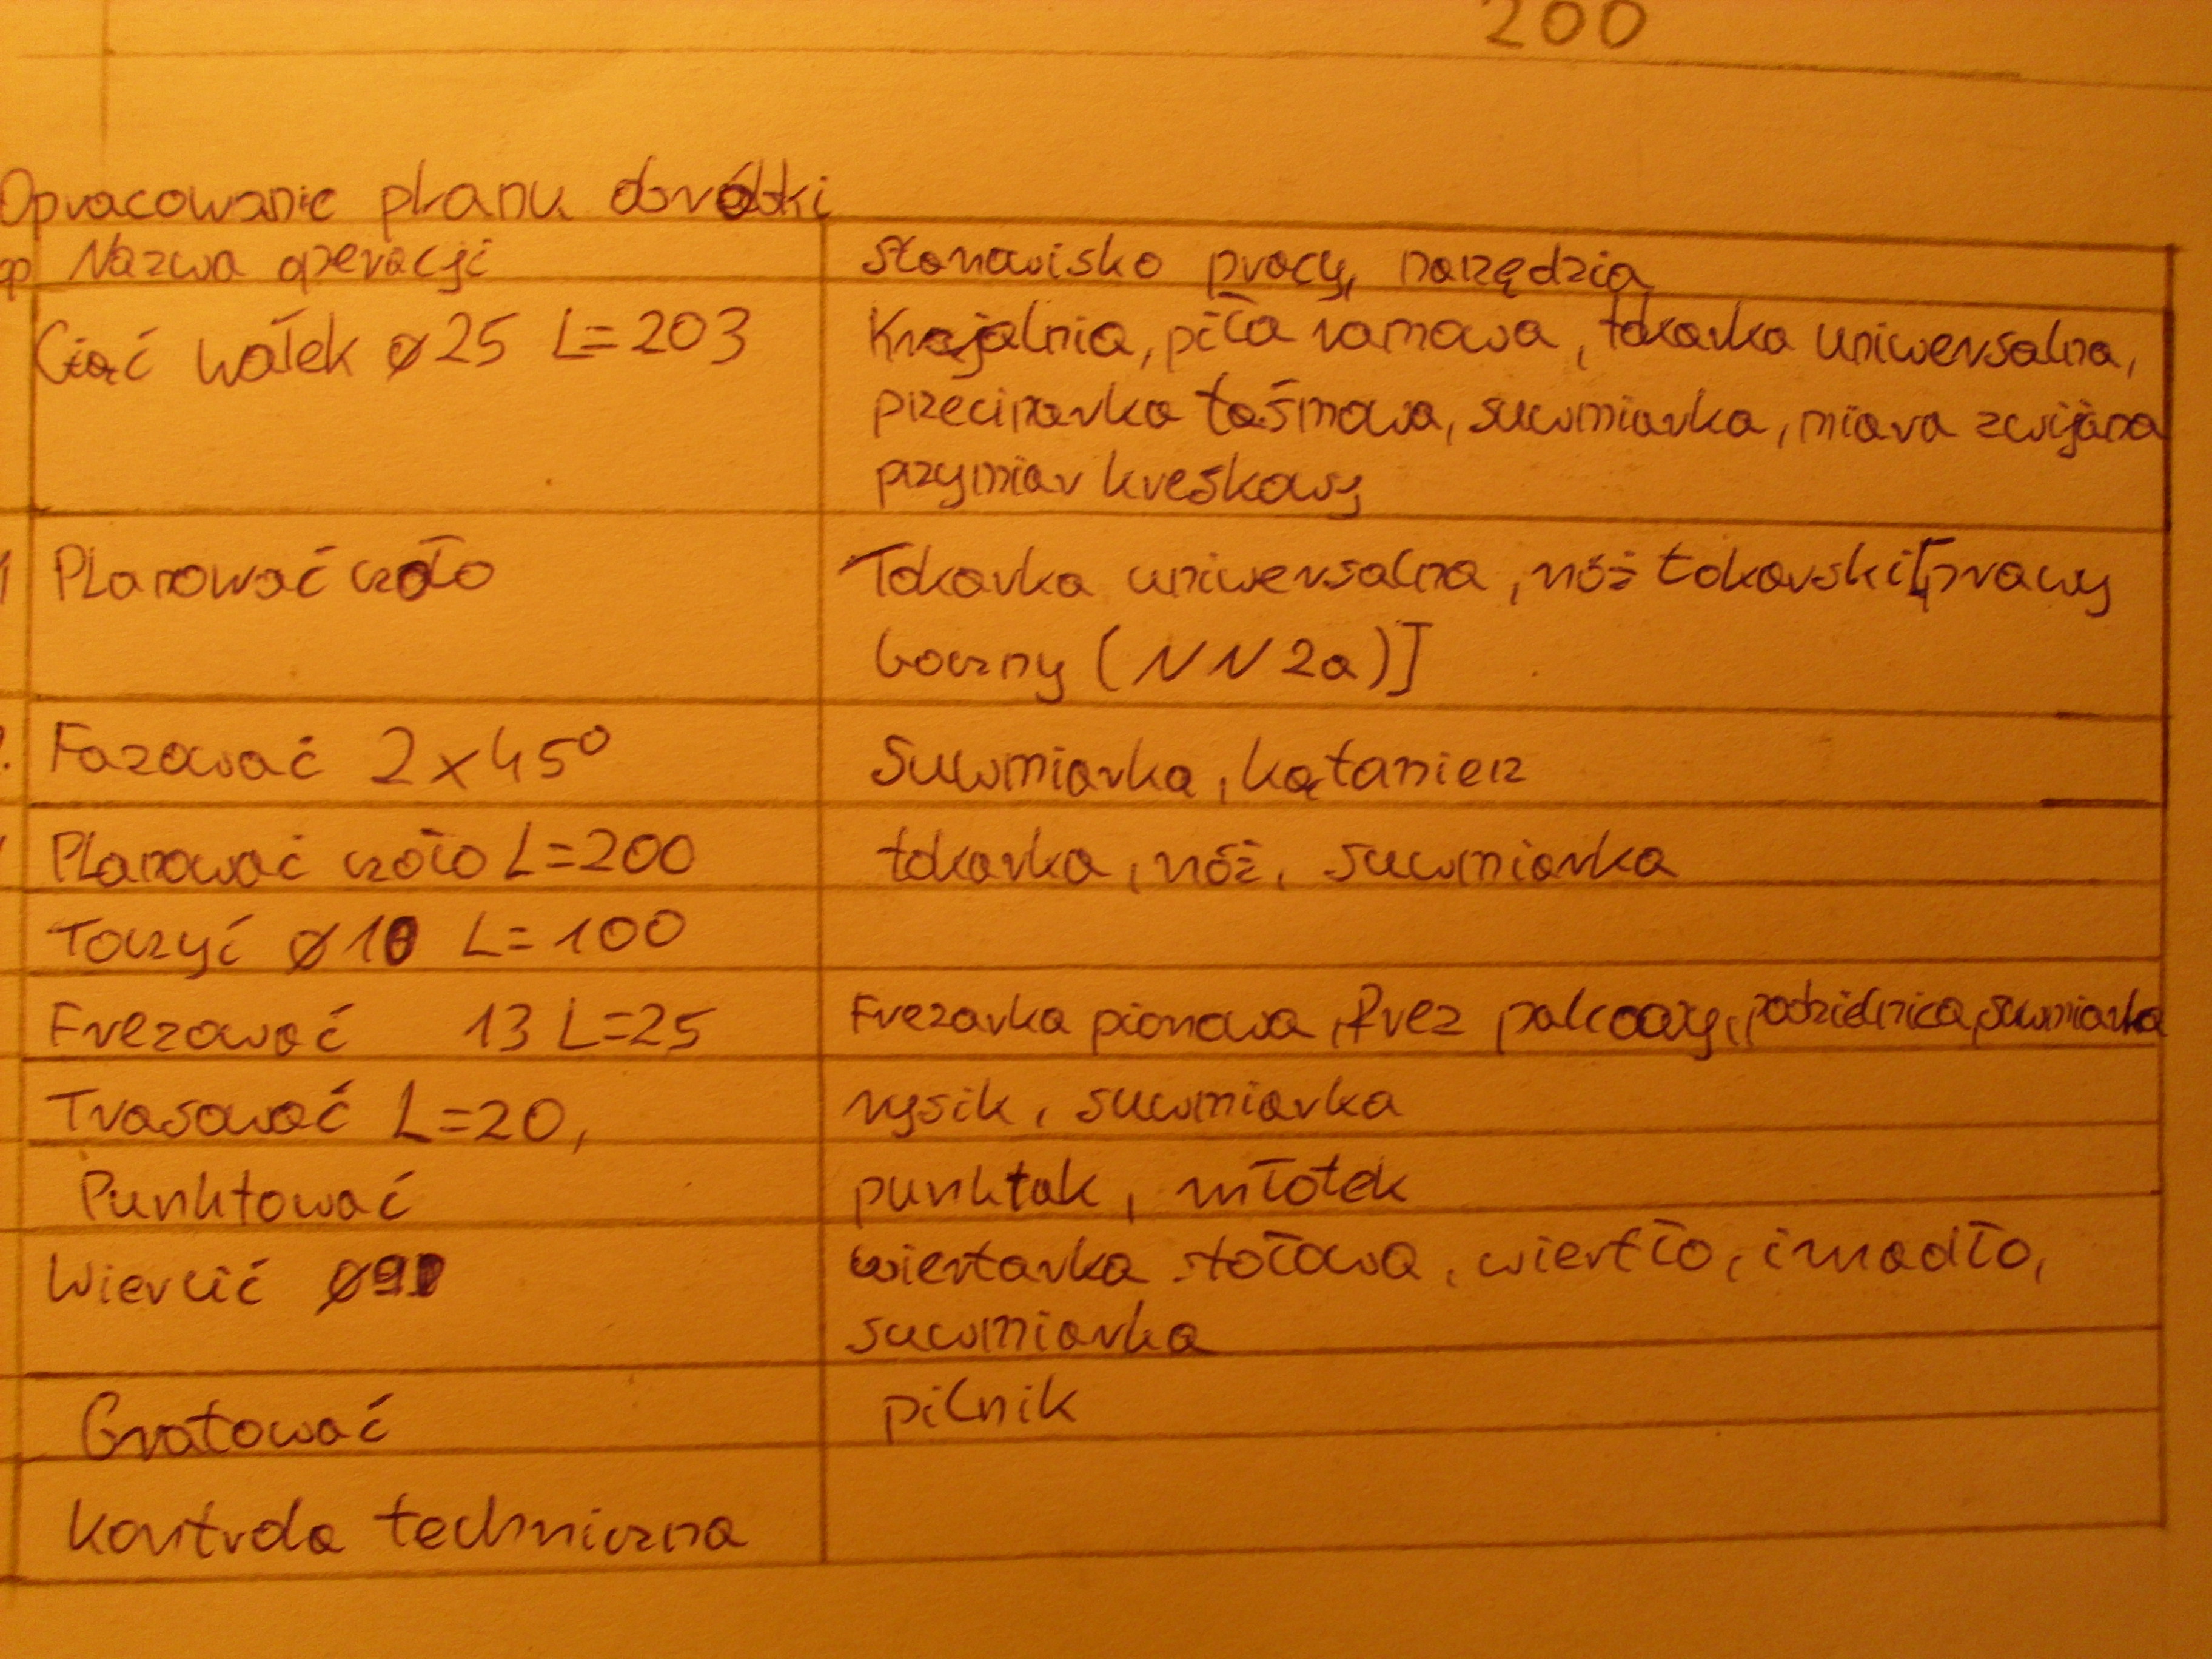 200
Opracowanie planu obróbki
op Nazwa operacji stanowisko pracy, narzędzia
Ciąć wałek ø25 L=203 Krajalnia, piła ramowa, tokarka uniwersalna,
przecinarka taśmowa, suwmiarka, miara zwijana
przymiar kreskowy
1 Planować czoło Tokarka uniwersalna, nóż tokarski [prawy
boczny (NN2a)]
Fazować 2x45° Suwmiarka, kątomierz
Planować czoło L=200 tokarka, nóż, suwmiarka
Toczyć ø10 L=100
Frezować 13 L=25 Frezarka pionowa, frez palcowy, podzielnica, suwmiarka
Trasować L=20, rysik, suwmiarka
Punktować punktak, młotek
Wiercić wiertarka stołowa, wiertło, imadło,
suwmiarka
Gratować pilnik
Kontrola techniczna